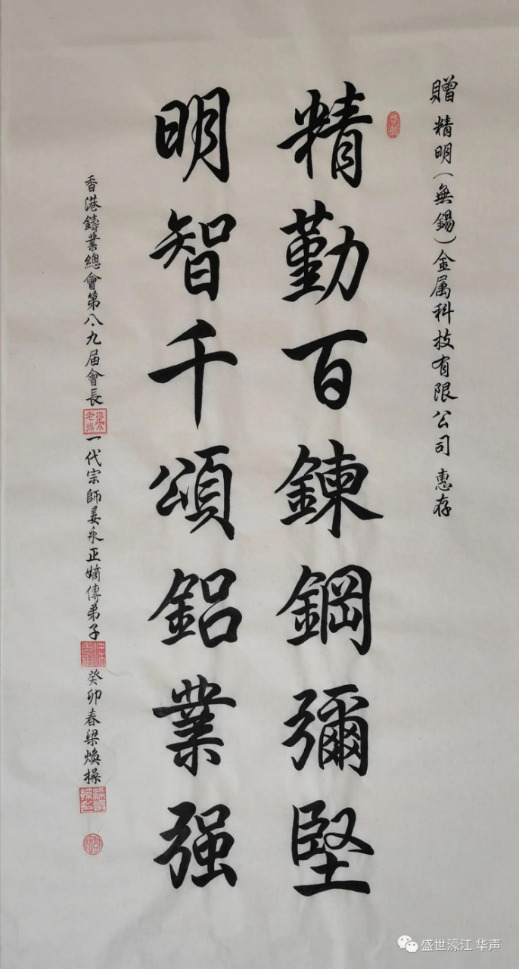 贈 精明(無錫)金属科技有限公司 惠存
精勤百鍊鋼彌堅
明智千頌鋁業强
香港鑄業總會第八、九届會長 一代宗師姜永正嫡傳弟子 癸卯春梁煥操
盛世濠江 华声